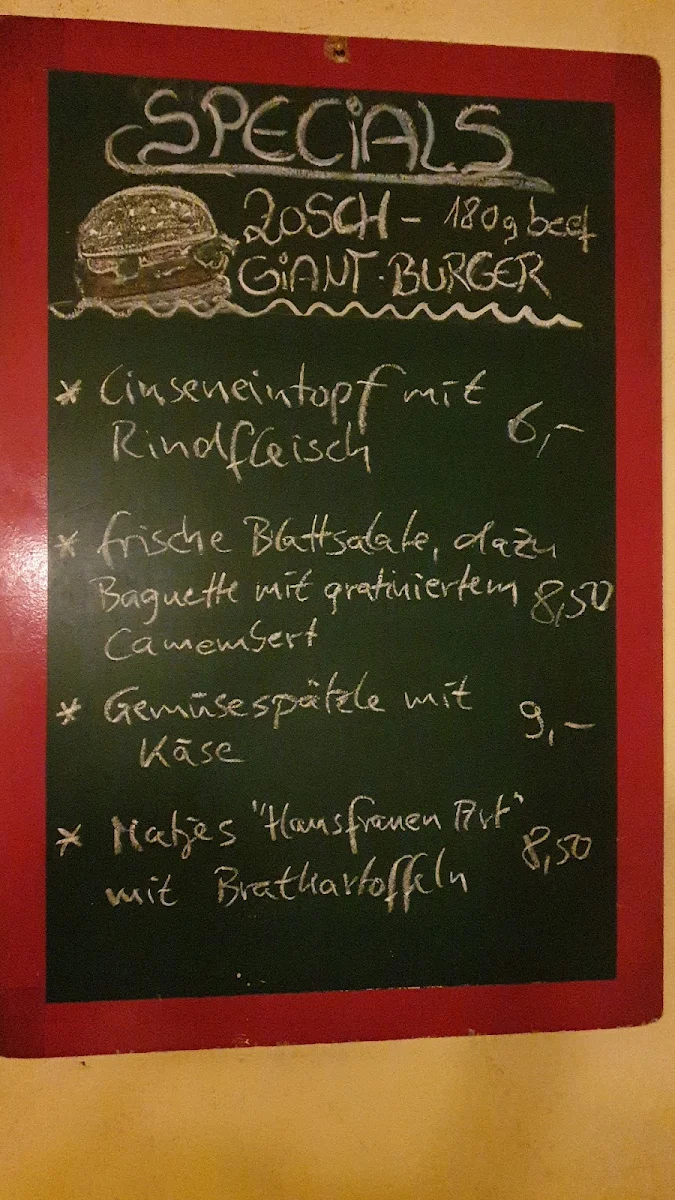 SPECiALS
ZOSCH - 180g beef
GiANT·BURGER
* Linseneintopf mit
Rindfleisch 6,-
* frische Blattsalate, dazu
Baguette mit gratiniertem 8,50
Camembert
* Gemüsespätzle mit
Käse 9,-
* Matjes "Hausfrauen Art"
mit Bratkartoffeln 8,50